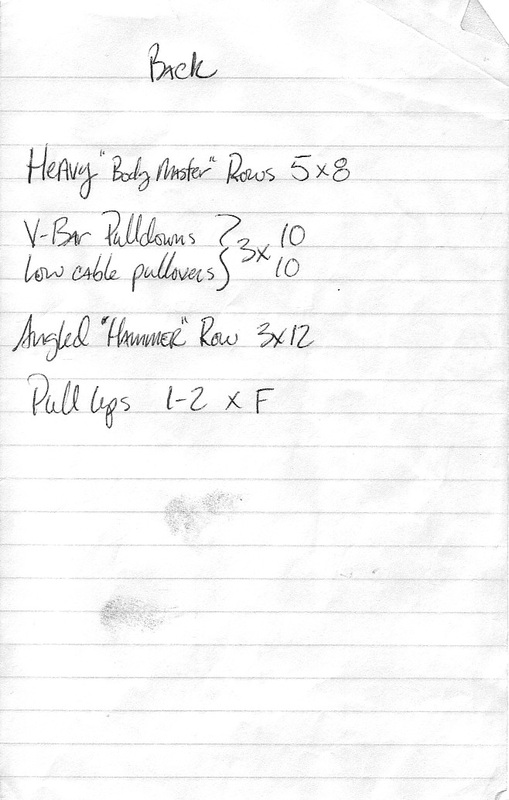 Back
Heavy "Body Master" Rows 5x8
V-Bar Pulldowns } 3x 10
Low cable pullovers } 10
Angled "Hammer" Row 3x12
Pull Ups 1-2 x F